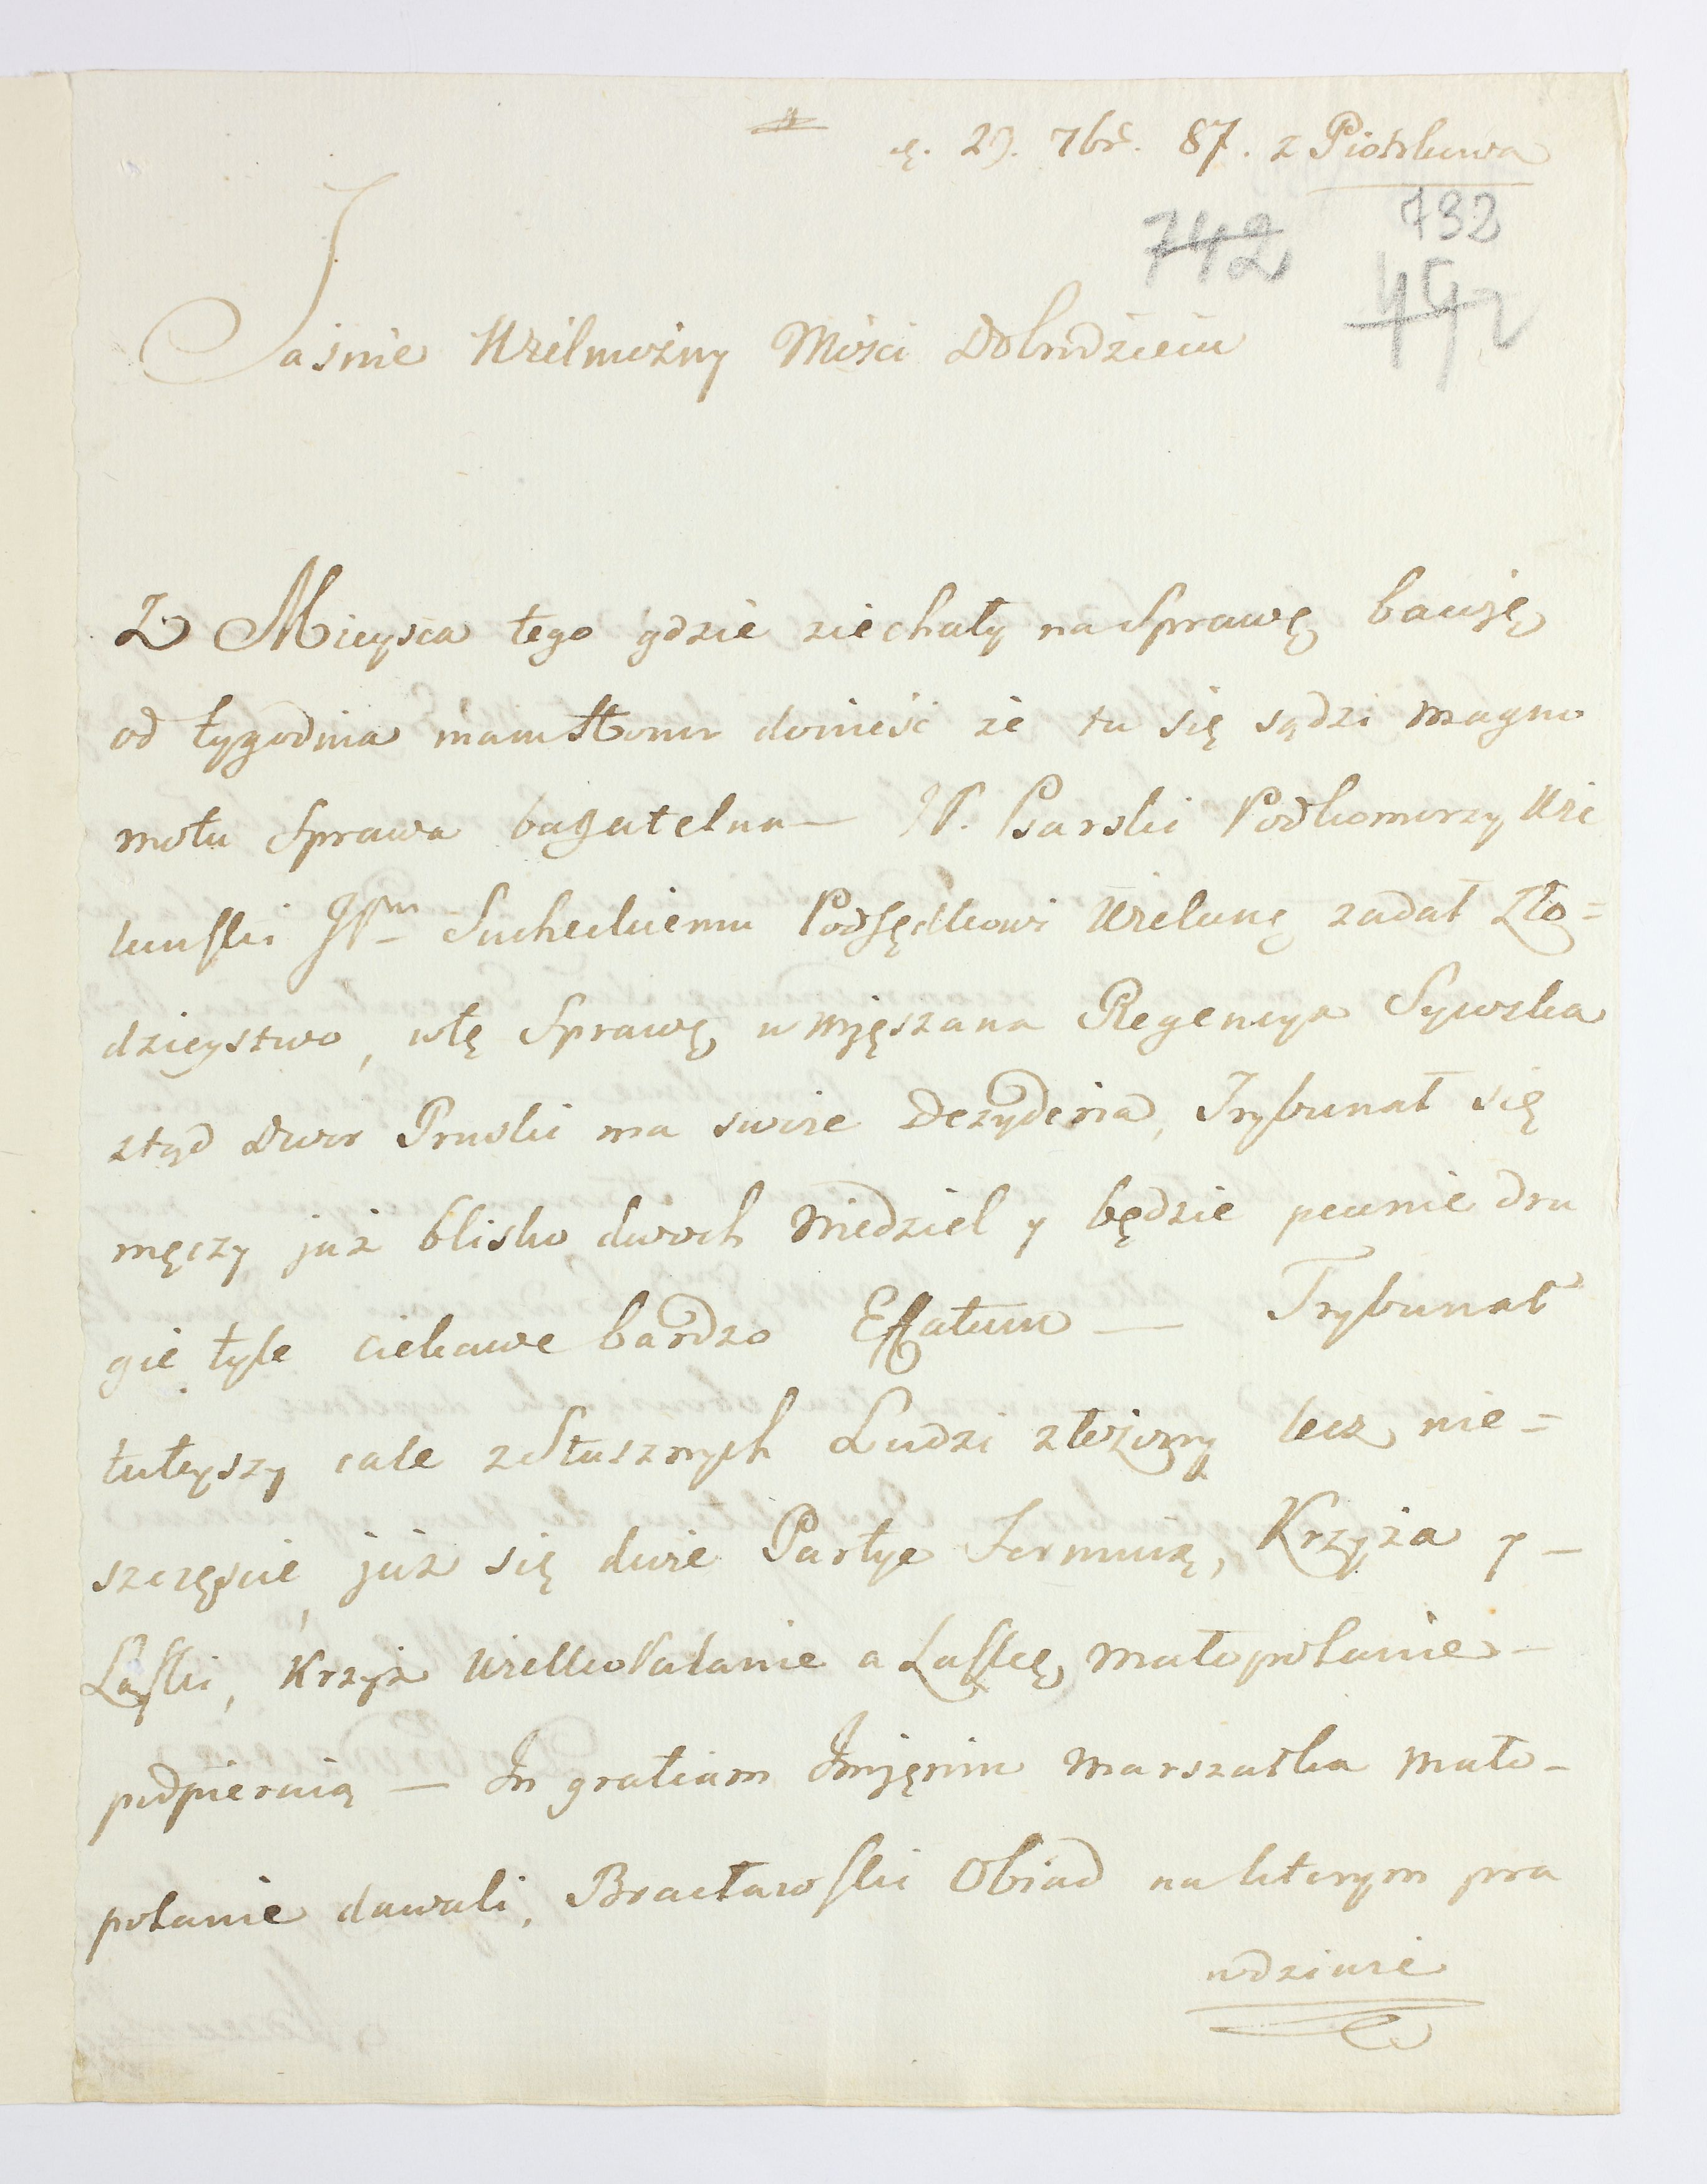 d. 29. 7br. 87. z Piotrkowa
742 732
Jaśnie Wielmożny Mości Dobrodzieiu
Z Mieysca tego gdzie ziechały na Sprawę bawię
od tygodnia mam Honor donieść że tu się sądzi magno
motu Sprawa bagatelna — JP. Psarski Podkomorzy Wie
lunski JPm Sucheckiemu Podsędkowi Wielunę zadał Zło=
dzieystwo, wtę Sprawę wmięszana Regencya Sywska
ztąd Dwor Pruski ma swoie Dezyderia, Trybunał się
męczy już blisko dwoch Niedziel y będzie pewnie dru
gie tyle ciekawe bardzo Effatum — Trybunał
tuteyszy cale z Słusznych Ludzi złożony lecz nie=
szczęście już się dwie Partye Formuią, Krzyża y —
Laski, Krzyż Wielkopolanie a Laskę małopolanie —
podpieraią — In gratiam Imięnin Marszałka Mało-
polanie dawali, Bracławski Obiad na ktorym pra
wdziwie